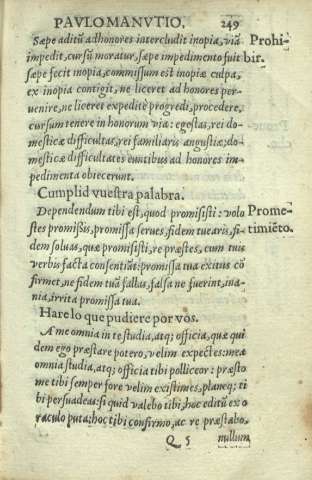 PAVLO MANVTIO. 249
Sæpe aditũ ad honores intercludit inopia, viã Prohi-
impedit, cursũ moratur, sæpe impedimento fuit bir.
sæpe fecit inopia, commissum est inopiæ culpa,
ex inopia contigit, ne liceret ad honores per-
uenire, ne liceret expeditè progredi, procedere,
cursum tenere in honorum via: egestas, rei do-
mesticæ difficultas, rei familiaris angustiæ; do-
mesticæ difficultates euntibus ad honores im-
pedimenta obiecerunt.
Cumplid vuestra palabra.
Dependendum tibi est, quod promisisti: volo Prome-
stes promißis, promissa serues, fidem tuearis, fi- timiẽto.
dem soluas, quæ promisisti, re præstes, cum tuis
verbis facta consentiãt: promissa tua exitus cõ
firmet, ne fidem tuã fallas, falsa ne fuerint, ina-
nia, irrita promissa tua.
Hare lo que pudiere por vos.
A me omnia in te studia, atq; officia, quæ qui
dem ego præstare potero, velim expectes: mea
omnia studia, atq; officia tibi polliceor: præsto
me tibi semper fore velim existimes, planeq; ti
bi persuadeas: si quid valebo tibi, hoc editũ ex o
raculo puta: hoc tibi confirmo, ac re præstabo,
Q 5 nullum